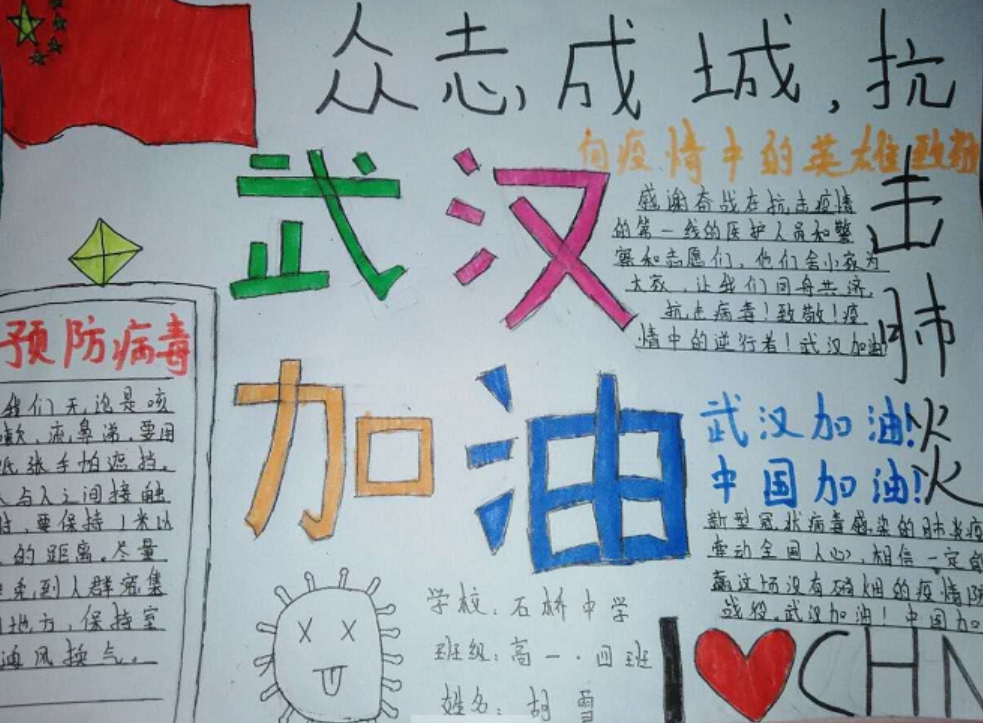 众志成城,抗击肺炎
武汉
加油
向疫情中的英雄致敬
感谢奋战在抗击疫情
的第一线的医护人员和警
察和志愿们,他们舍小家为
大家,让我们同舟共济,
抗击病毒!致敬!疫
情中的逆行者!武汉加油!
预防病毒
我们无论是咳
嗽,流鼻涕,要用
纸张手帕遮挡。
人与人之间接触
时,要保持1米以
上的距离。尽量
避免到人群密集
地方,保持室
通风换气。
武汉加油!
中国加油!
新型冠状病毒感染的肺炎疫
牵动全国人心,相信一定能
赢这场没有硝烟的疫情防
战役。武汉加油!中国加
学校:石桥中学
班级:高一.四班
姓名:胡雪
I CHN